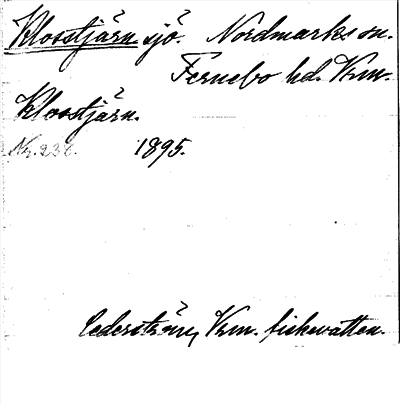 Klosstjärn sjö. Nordmarks sn.
Fernebo hd. Vrm.
Klosstjärn.
Nr. 1895.
Cederström, Vrm. fiskevatten.